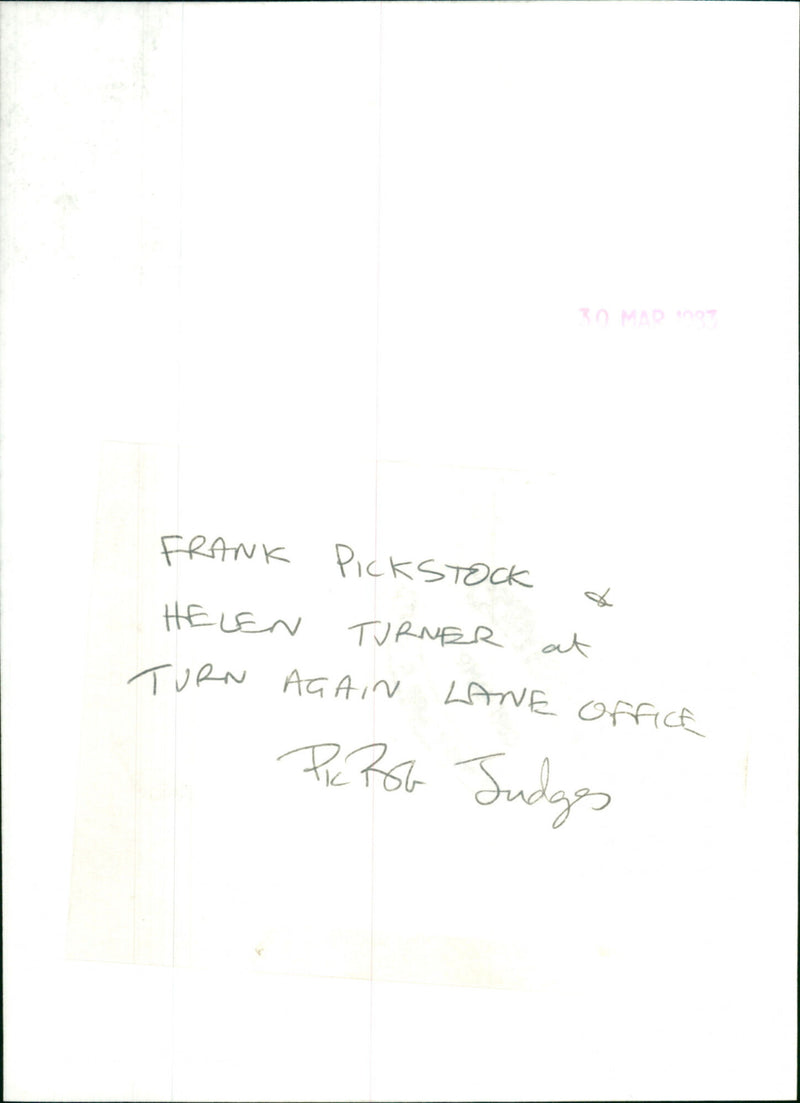 30 MAR 1983
FRANK PICKSTOCK &
HELEN TURNER at
TURN AGAIN LANE OFFICE
Pic Rob Judges